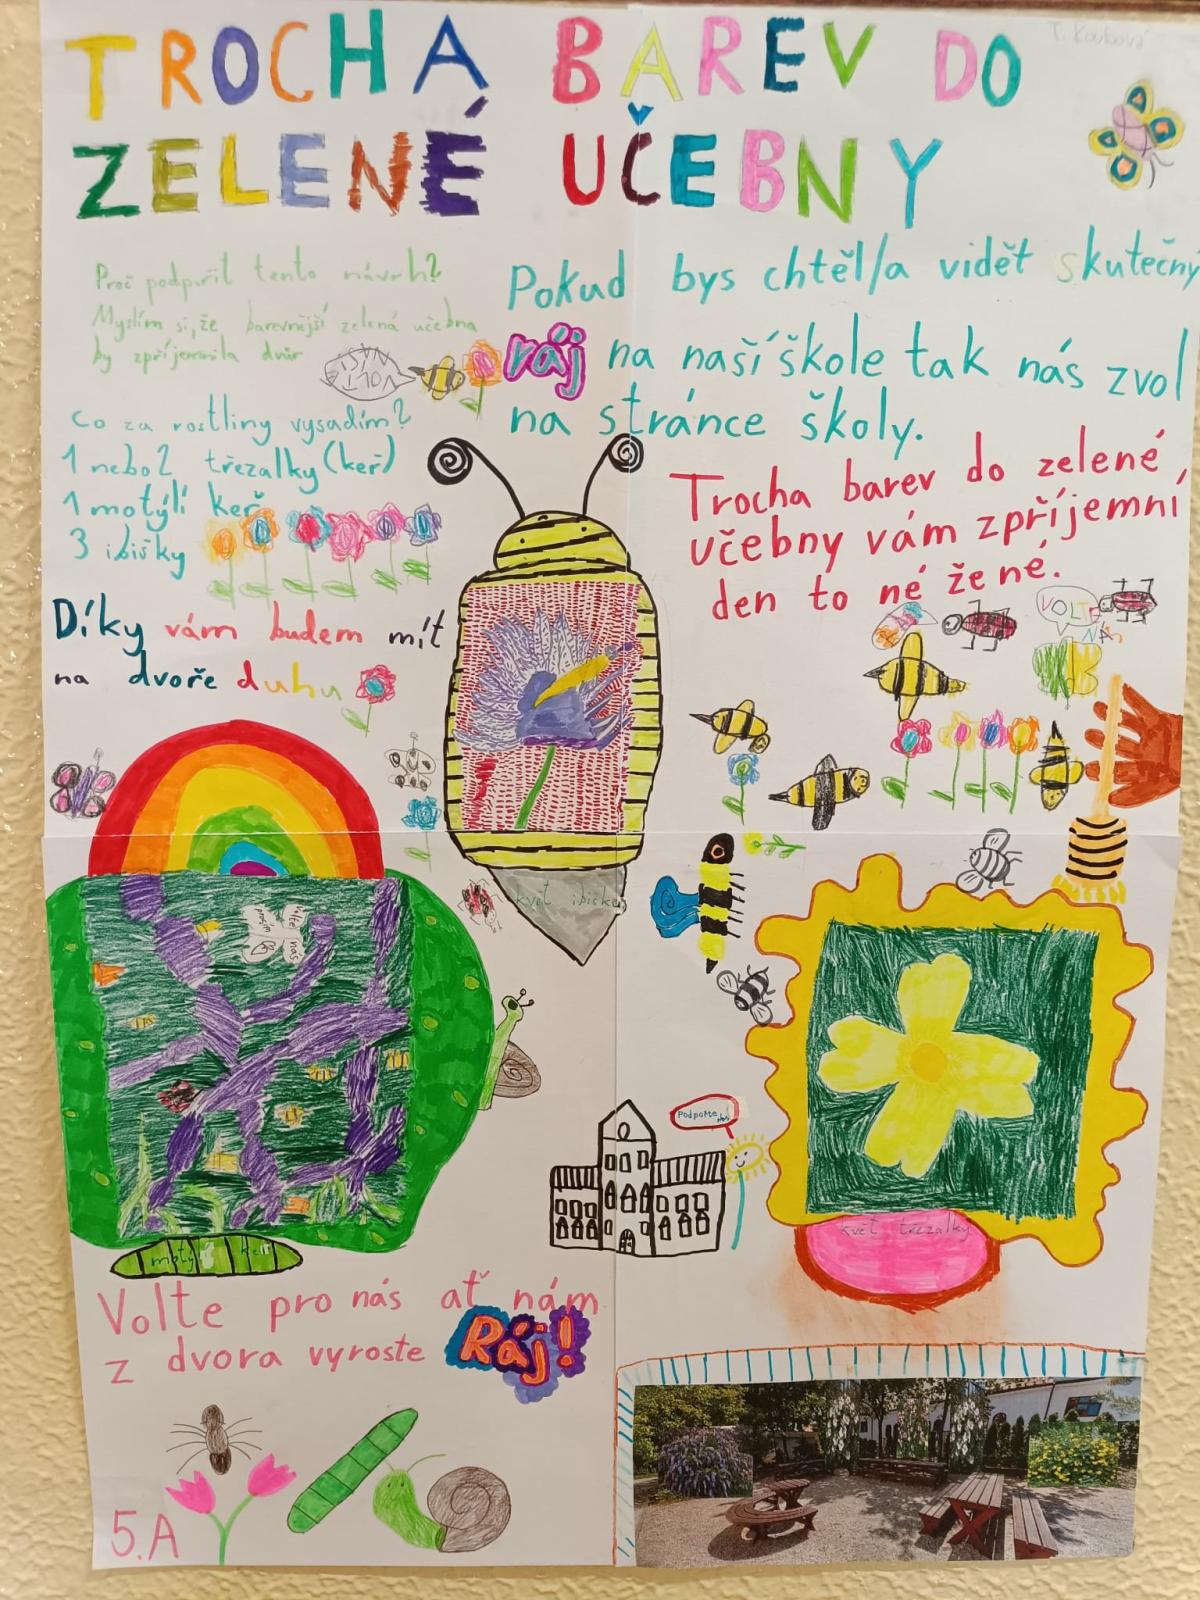 T. Koubová
TROCHA BAREV DO
ZELENÉ UČEBNY
Proč podpořit tento návrh?
Myslím si, že barevnější zelená učebna
by zpříjemnila dvůr
VOLTE
NÁS!
Co za rostliny vysadím?
1 nebo 2 třezalky (keř)
1 motýlí keř
3 ibišky
Díky vám budem mít
na dvoře duhu
Pokud bys chtěl/a vidět skutečný
ráj na naší škole tak nás zvol
na stránce školy.
Trocha barev do zelené
učebny vám zpříjemní
den to né že né.
VOLTE
NÁS
květ ibišku
Volte nás
prosím
Podpořte nás!
květ třezalky
motýlí keř
Volte pro nás ať nám
z dvora vyroste Ráj!
5.A